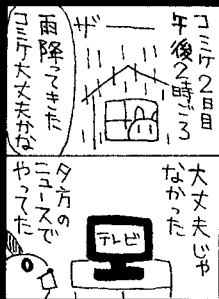 コミケ2日目
午後2時ごろ
ザー
雨降ってきた
コミケ大丈夫かな
大丈夫じゃ
なかった
テレビ
夕方の
ニュースで
やってた